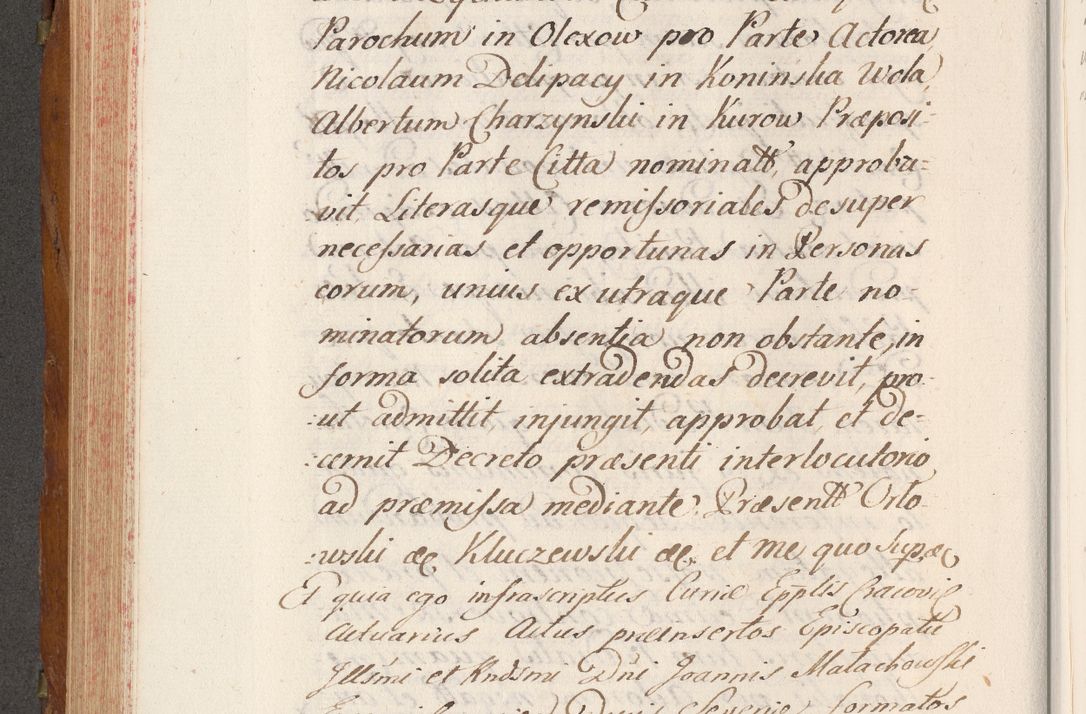 Parochum in Olexow pro Parte Actorea
Nicolaum Delipacy in Koninska Wola,
Albertum Charzynski in Kurow Præposi-
tos pro Parte Citta nominatt, approba-
vit Literasque remissoriales desuper
necessarias et opportunas in Personas
eorum, unius ex utraque Parte no-
minatorum absentia non obstante, in
forma solita extradendas decrevit, pro-
:ut admittit injungit, approbat, et de-
:cernit Decreto præsenti interlocutorio
ad præmissa mediante. Præsentt Orło-
:wski æc Kluczewski æc. et me quo supæc
Et quia ego infrascriptus Curiæ Epplis Cracovien
Actuarius Actus præinsertos Episcopatu
Illsmi et Rndsmi Dñi Joannis Małachowski
formatos